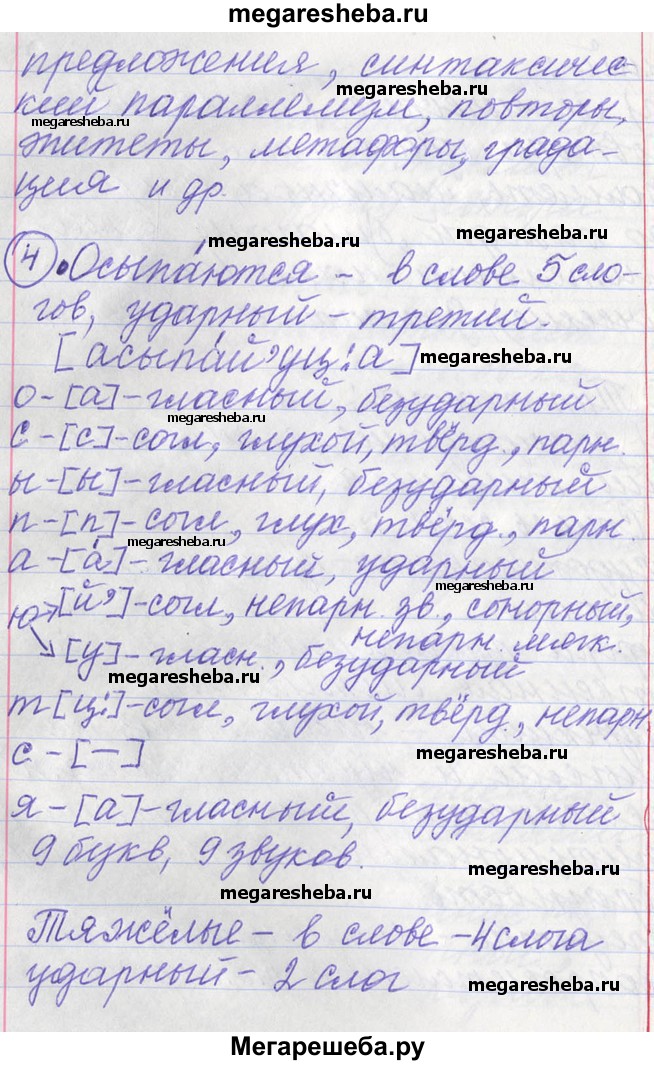 megaresheba.ru
предложения, синтаксичес-
megaresheba.ru
кий параллелизм, повторы,
megaresheba.ru
эпитеты, метафоры, града-
ция и др.
megaresheba.ru
4 • Осыпа́ются – в слове 5 сло-
megaresheba.ru
гов, ударный – третий.
[асыпа́й’уц:а] megaresheba.ru
о – [а] – гласный, безударный
megaresheba.ru
с – [с] – согл, глухой, твёрд., парн.
ы – [ы] – гласный, безударный
megaresheba.ru
п – [п] – согл, глух, твёрд., парн.
megaresheba.ru
а – [а́] – гласный, ударный
megaresheba.ru
ю → [й’] – согл, непарн. зв., сонорный,
непарн. мягк.
→ [у] – гласн., безударный
megaresheba.ru
т [ц:] – согл, глухой, твёрд., непарн.
с – [—] megaresheba.ru
я – [а] – гласный, безударный
9 букв, 9 звуков.
megaresheba.ru
megaresheba.ru
Тяжёлые – в слове – 4 слога
ударный – 2 слог
megaresheba.ru
Мегарешеба.ру